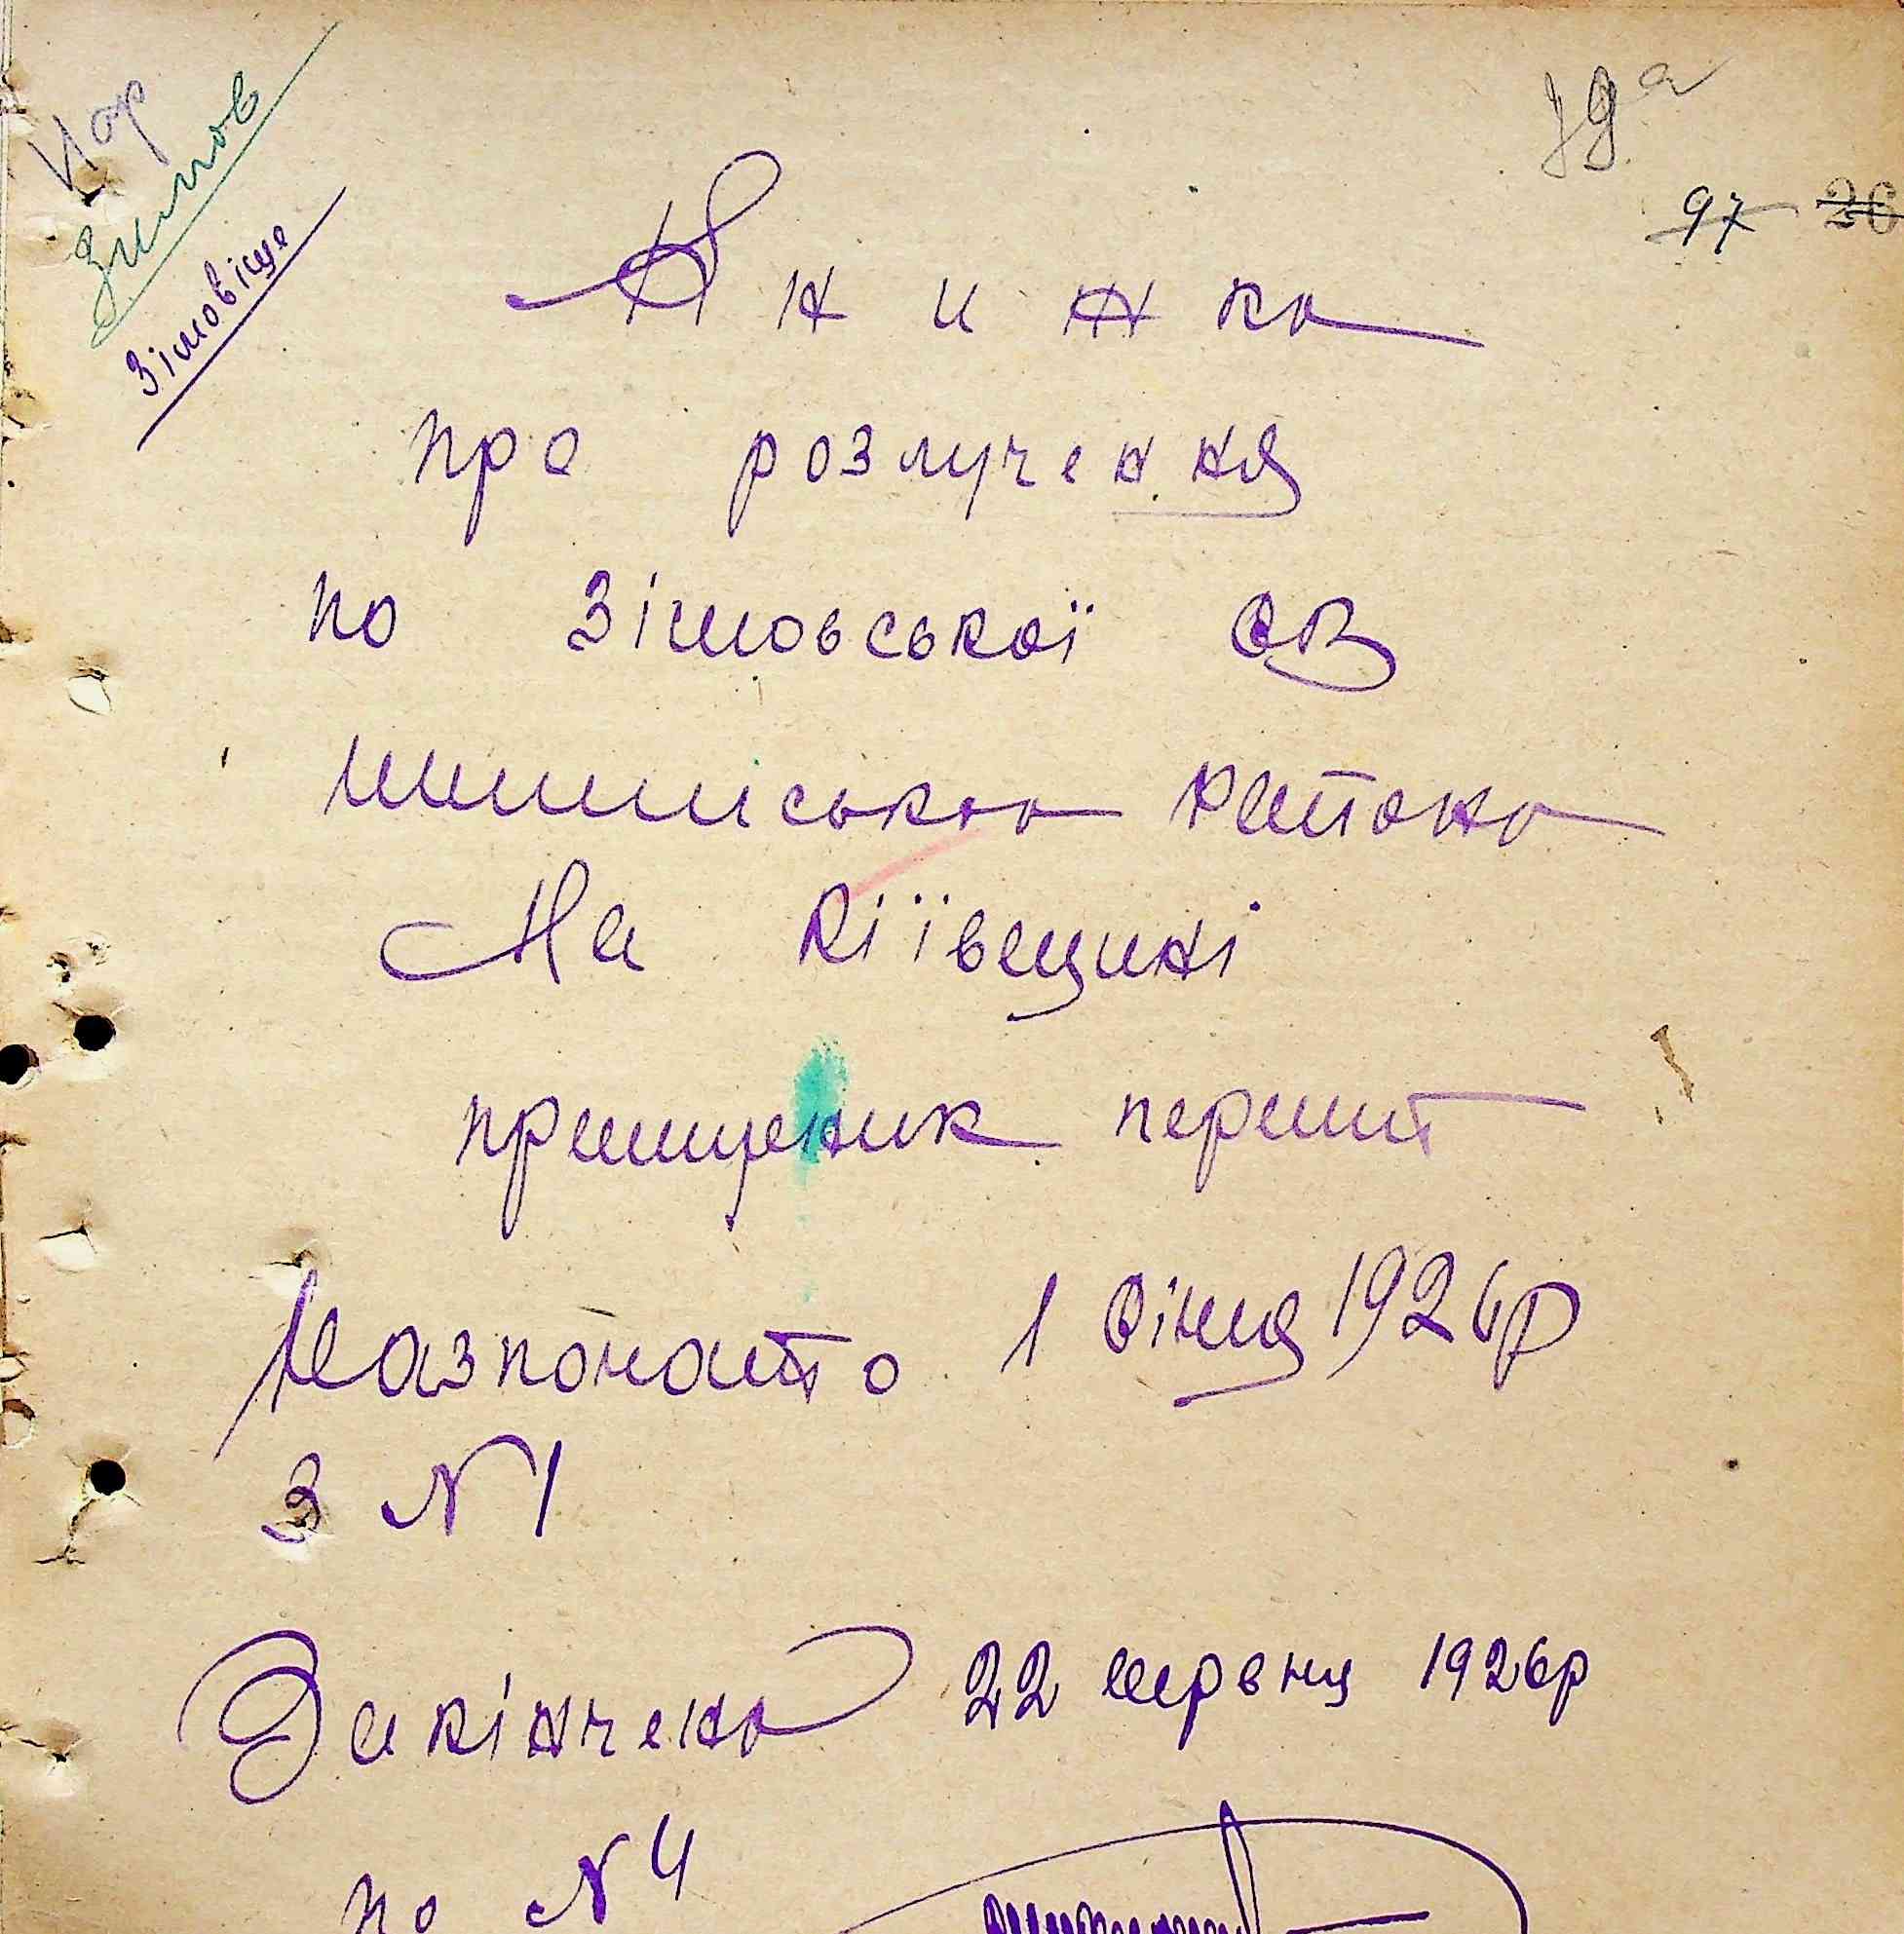 Зимов
Зімовіще
97 26
Книжка
про розлучення
по Зімовської СВ
шепеліського району
На Кіївещині
примірник перший
Разпочато 1 Січня 1926р
З N1
Закінчено 22 червня 1926р
по N4